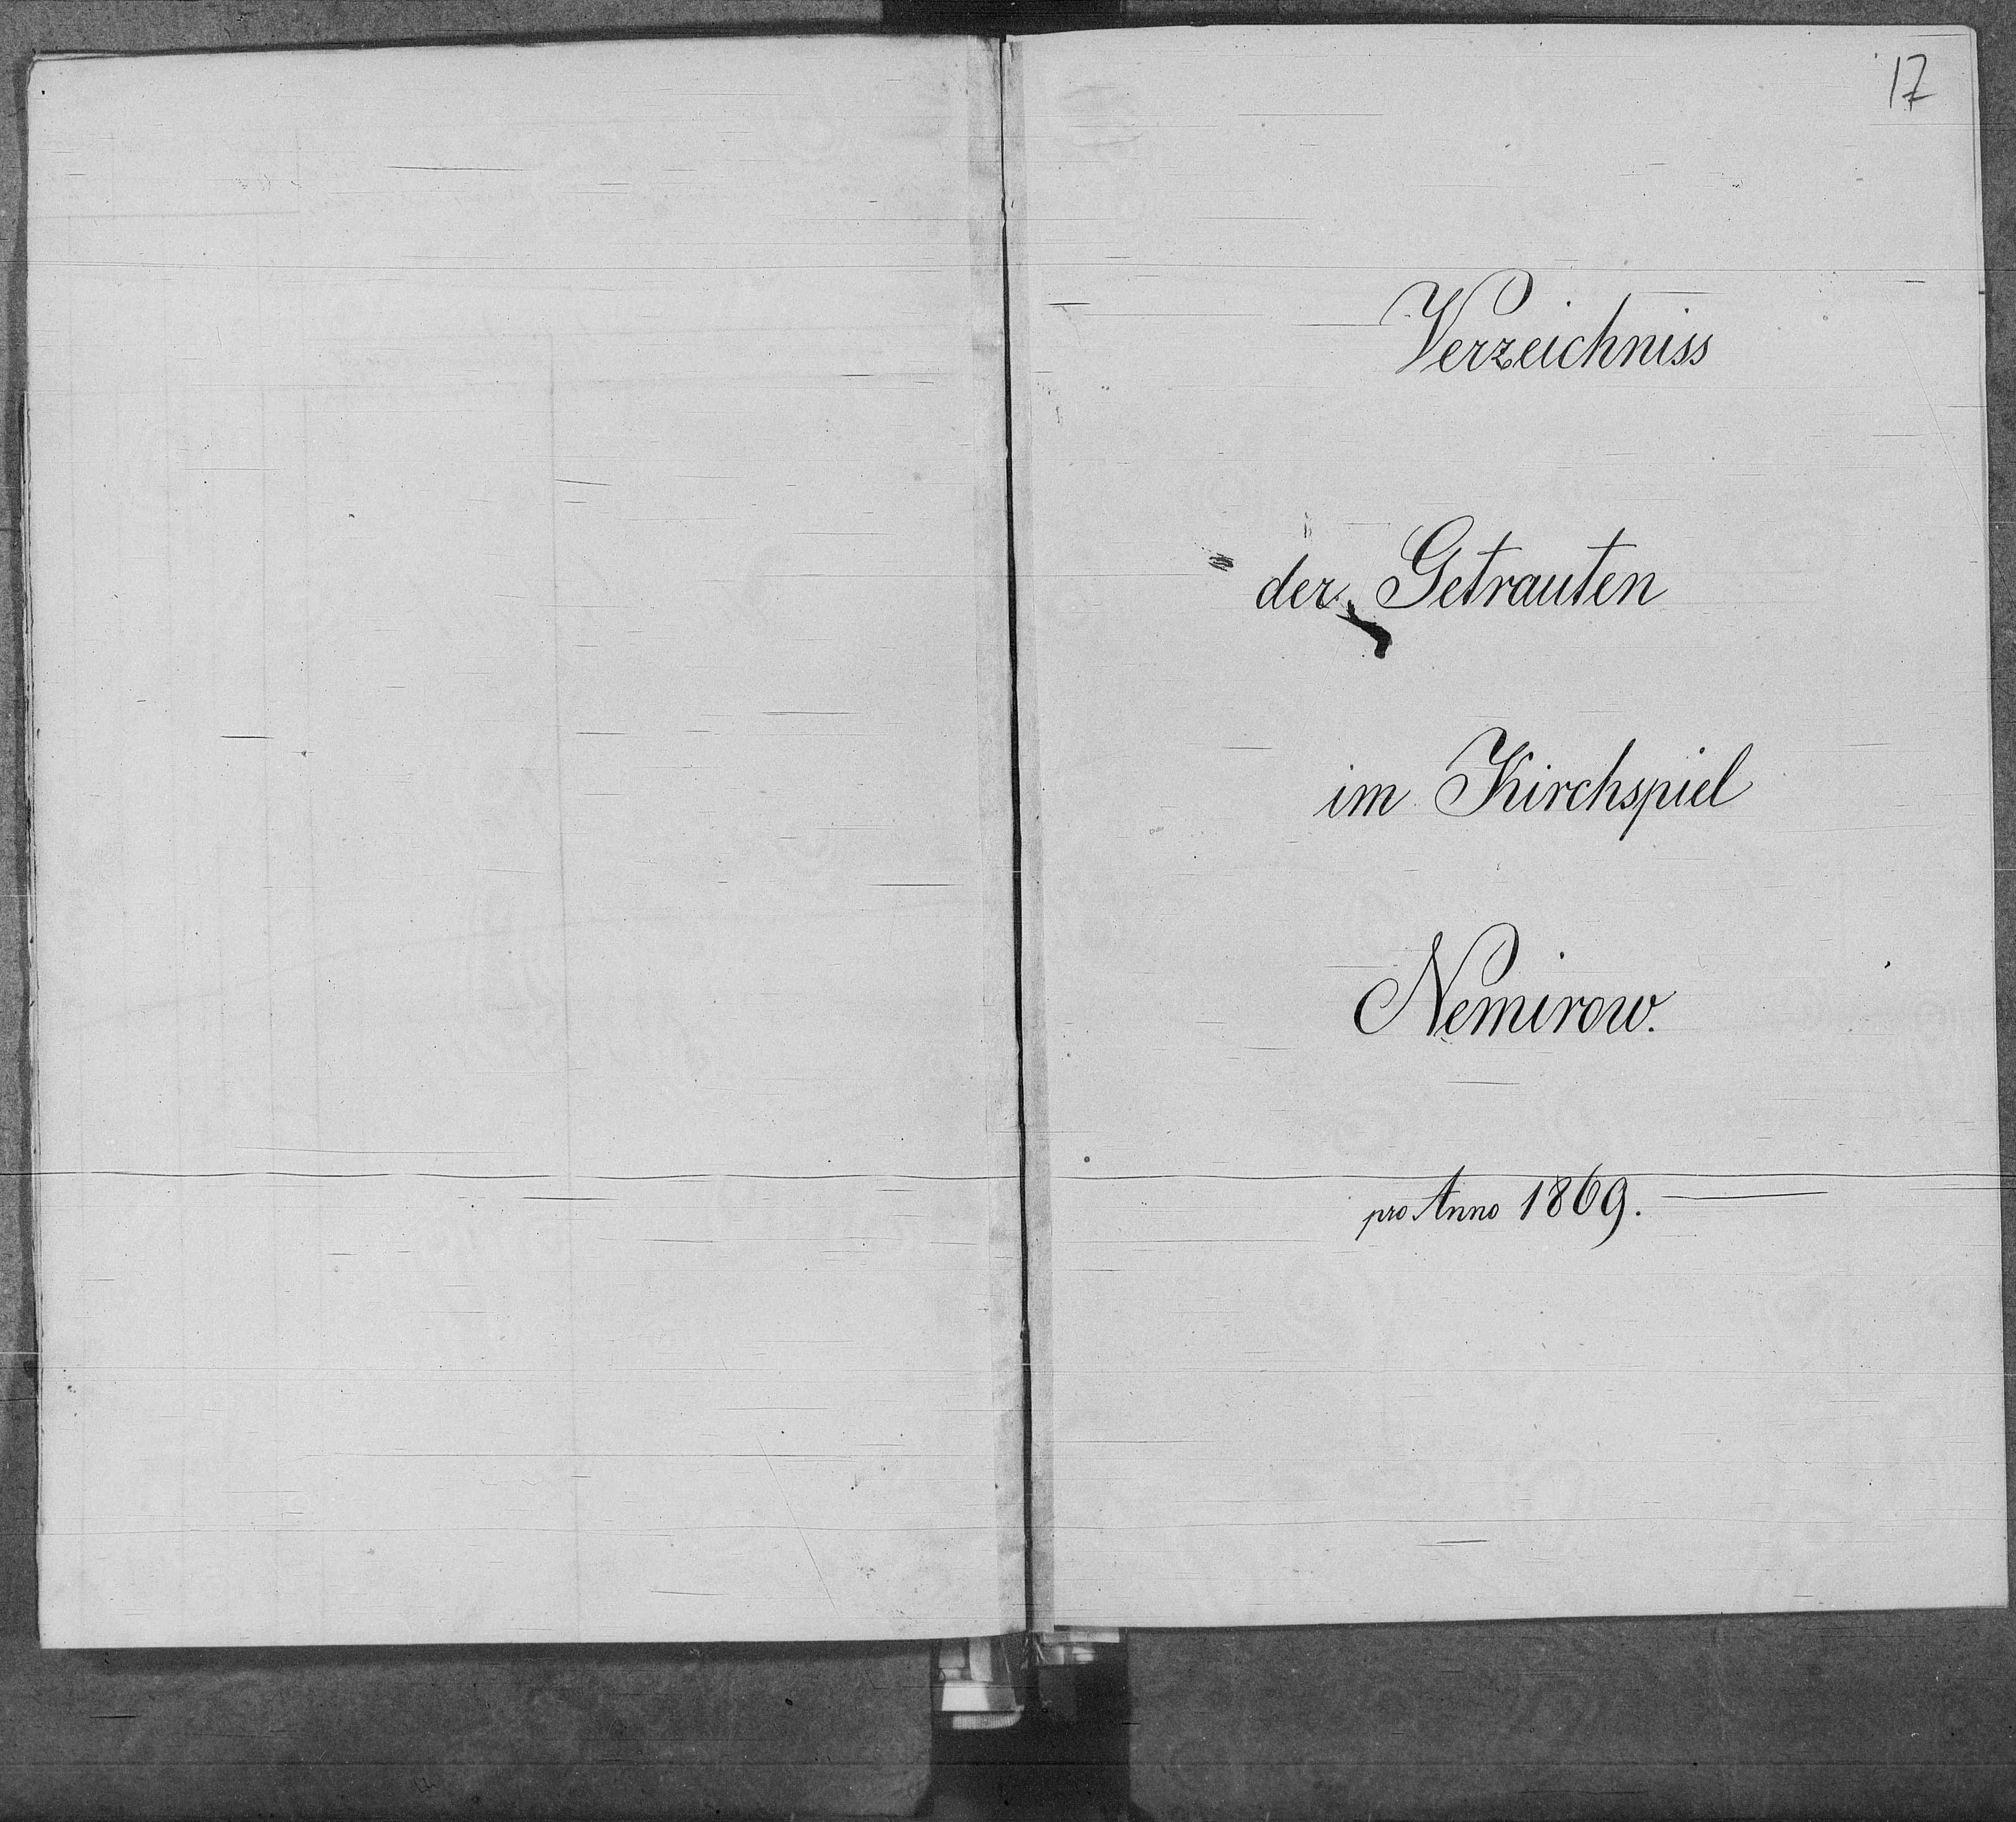 17
Verzeichniss
der Getrauten
im Kirchspiel
Nemirow.
pro Anno 1869.